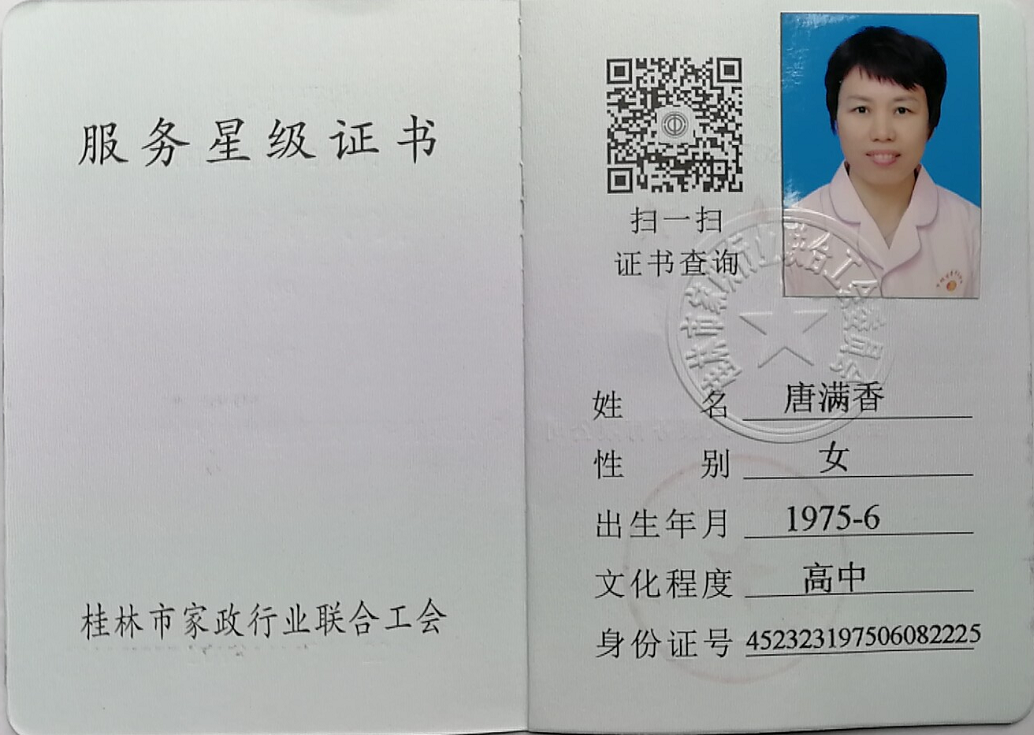 服务星级证书
桂林市家政行业联合工会
扫一扫
证书查询
桂林市家政行业联合工会委员会
姓名 唐满香
性别 女
出生年月 1975-6
文化程度 高中
身份证号 452323197506082225